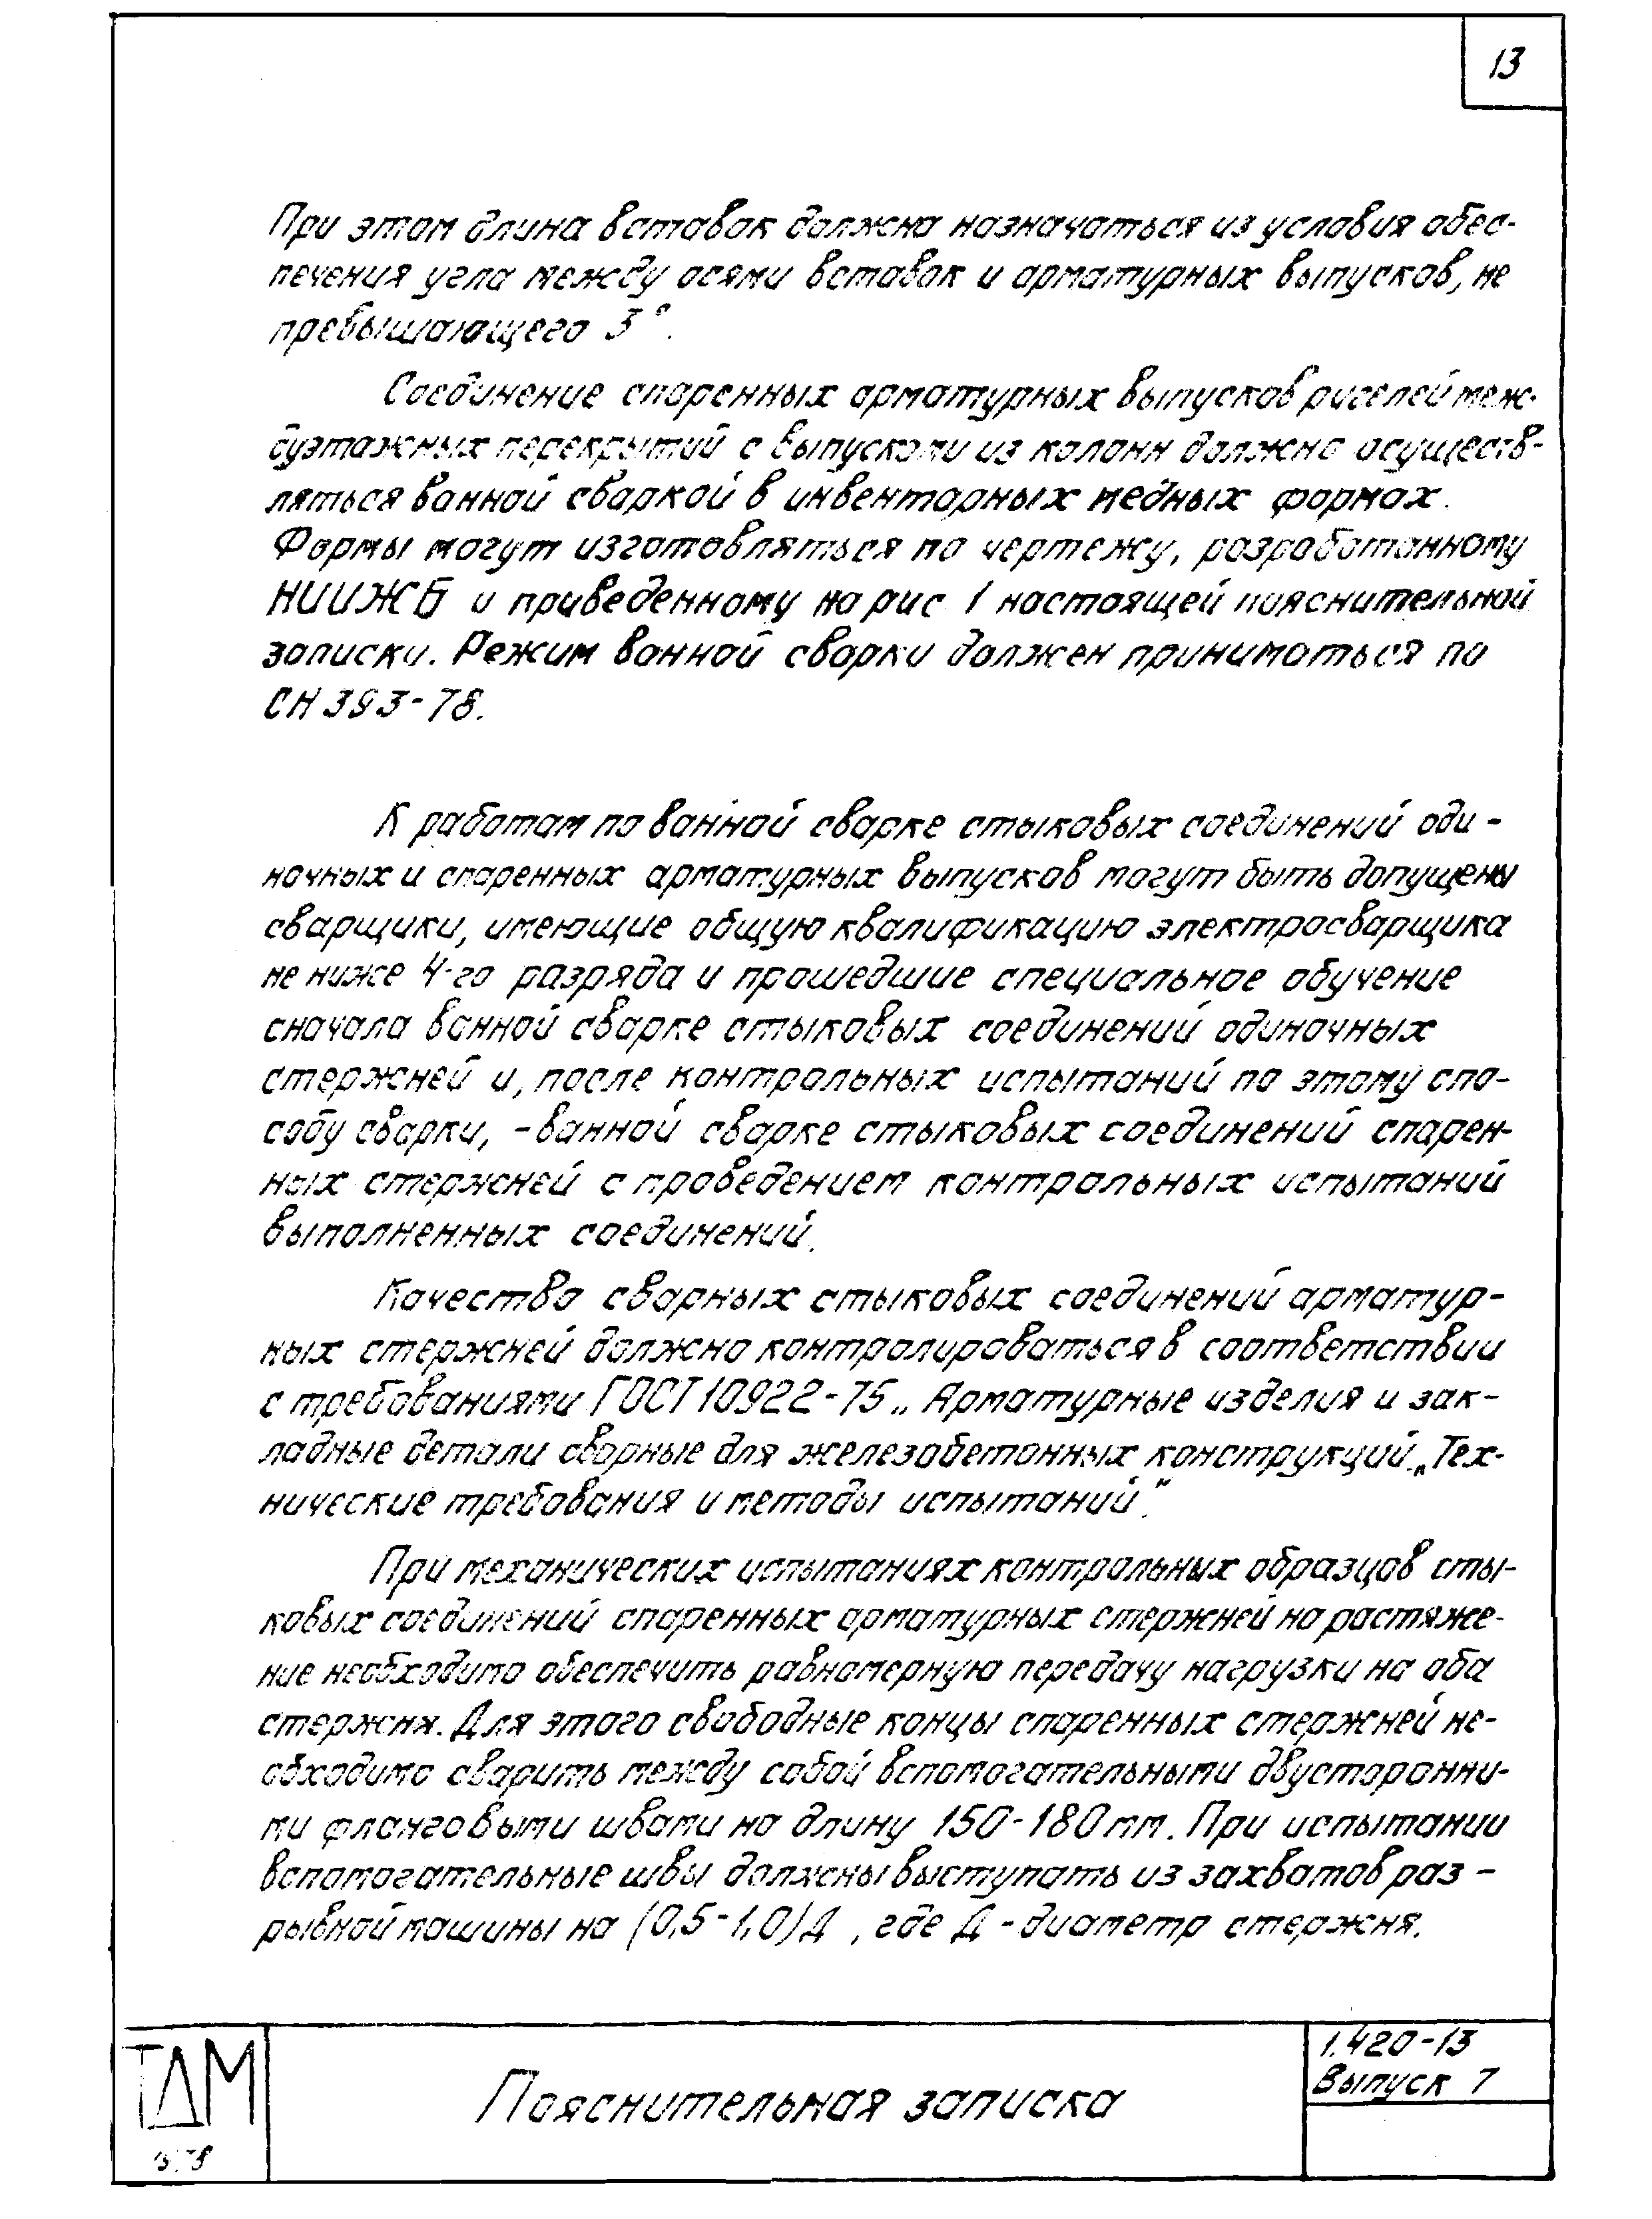 13
При этом длина вставок должна назначаться из условия обес-
печения угла между осями вставок и арматурных выпусков, не
превышающего 3°.
Соединение спаренных арматурных выпусков ригелей меж-
дуэтажных перекрытий с выпусками из колонн должно осуществ-
ляться ванной сваркой в инвентарных медных формах.
Формы могут изготовляться по чертежу, разработанному
НИИЖБ и приведенному на рис 1 настоящей пояснительной
записки. Режим ванной сварки должен приниматься по
СН 393-78.
К работам по ванной сварке стыковых соединений оди-
ночных и спаренных арматурных выпусков могут быть допущены
сварщики, имеющие общую квалификацию электросварщика
не ниже 4-го разряда и прошедшие специальное обучение
сначала ванной сварке стыковых соединений одиночных
стержней и, после контрольных испытаний по этому спо-
собу сварки, - ванной сварке стыковых соединений спарен-
ных стержней с проведением контрольных испытаний
выполненных соединений.
Качество сварных стыковых соединений арматур-
ных стержней должно контролироваться в соответствии
с требованиями ГОСТ 10922-75 „Арматурные изделия и зак-
ладные детали сварные для железобетонных конструкций „Тех-
нические требования и методы испытаний".
При механических испытаниях контрольных образцов сты-
ковых соединений спаренных арматурных стержней на растяже-
ние необходимо обеспечить равномерную передачу нагрузки на оба
стержня. Для этого свободные концы спаренных стержней не-
обходимо сварить между собой вспомогательными двусторонни-
ми фланговыми швами на длину 150-180 мм. При испытании
вспомогательные швы должны выступать из захватов раз-
рывной машины на (0,5-1,0)Д, где Д - диаметр стержня.
ТДМ
Пояснительная записка
1.420-13
Выпуск 7